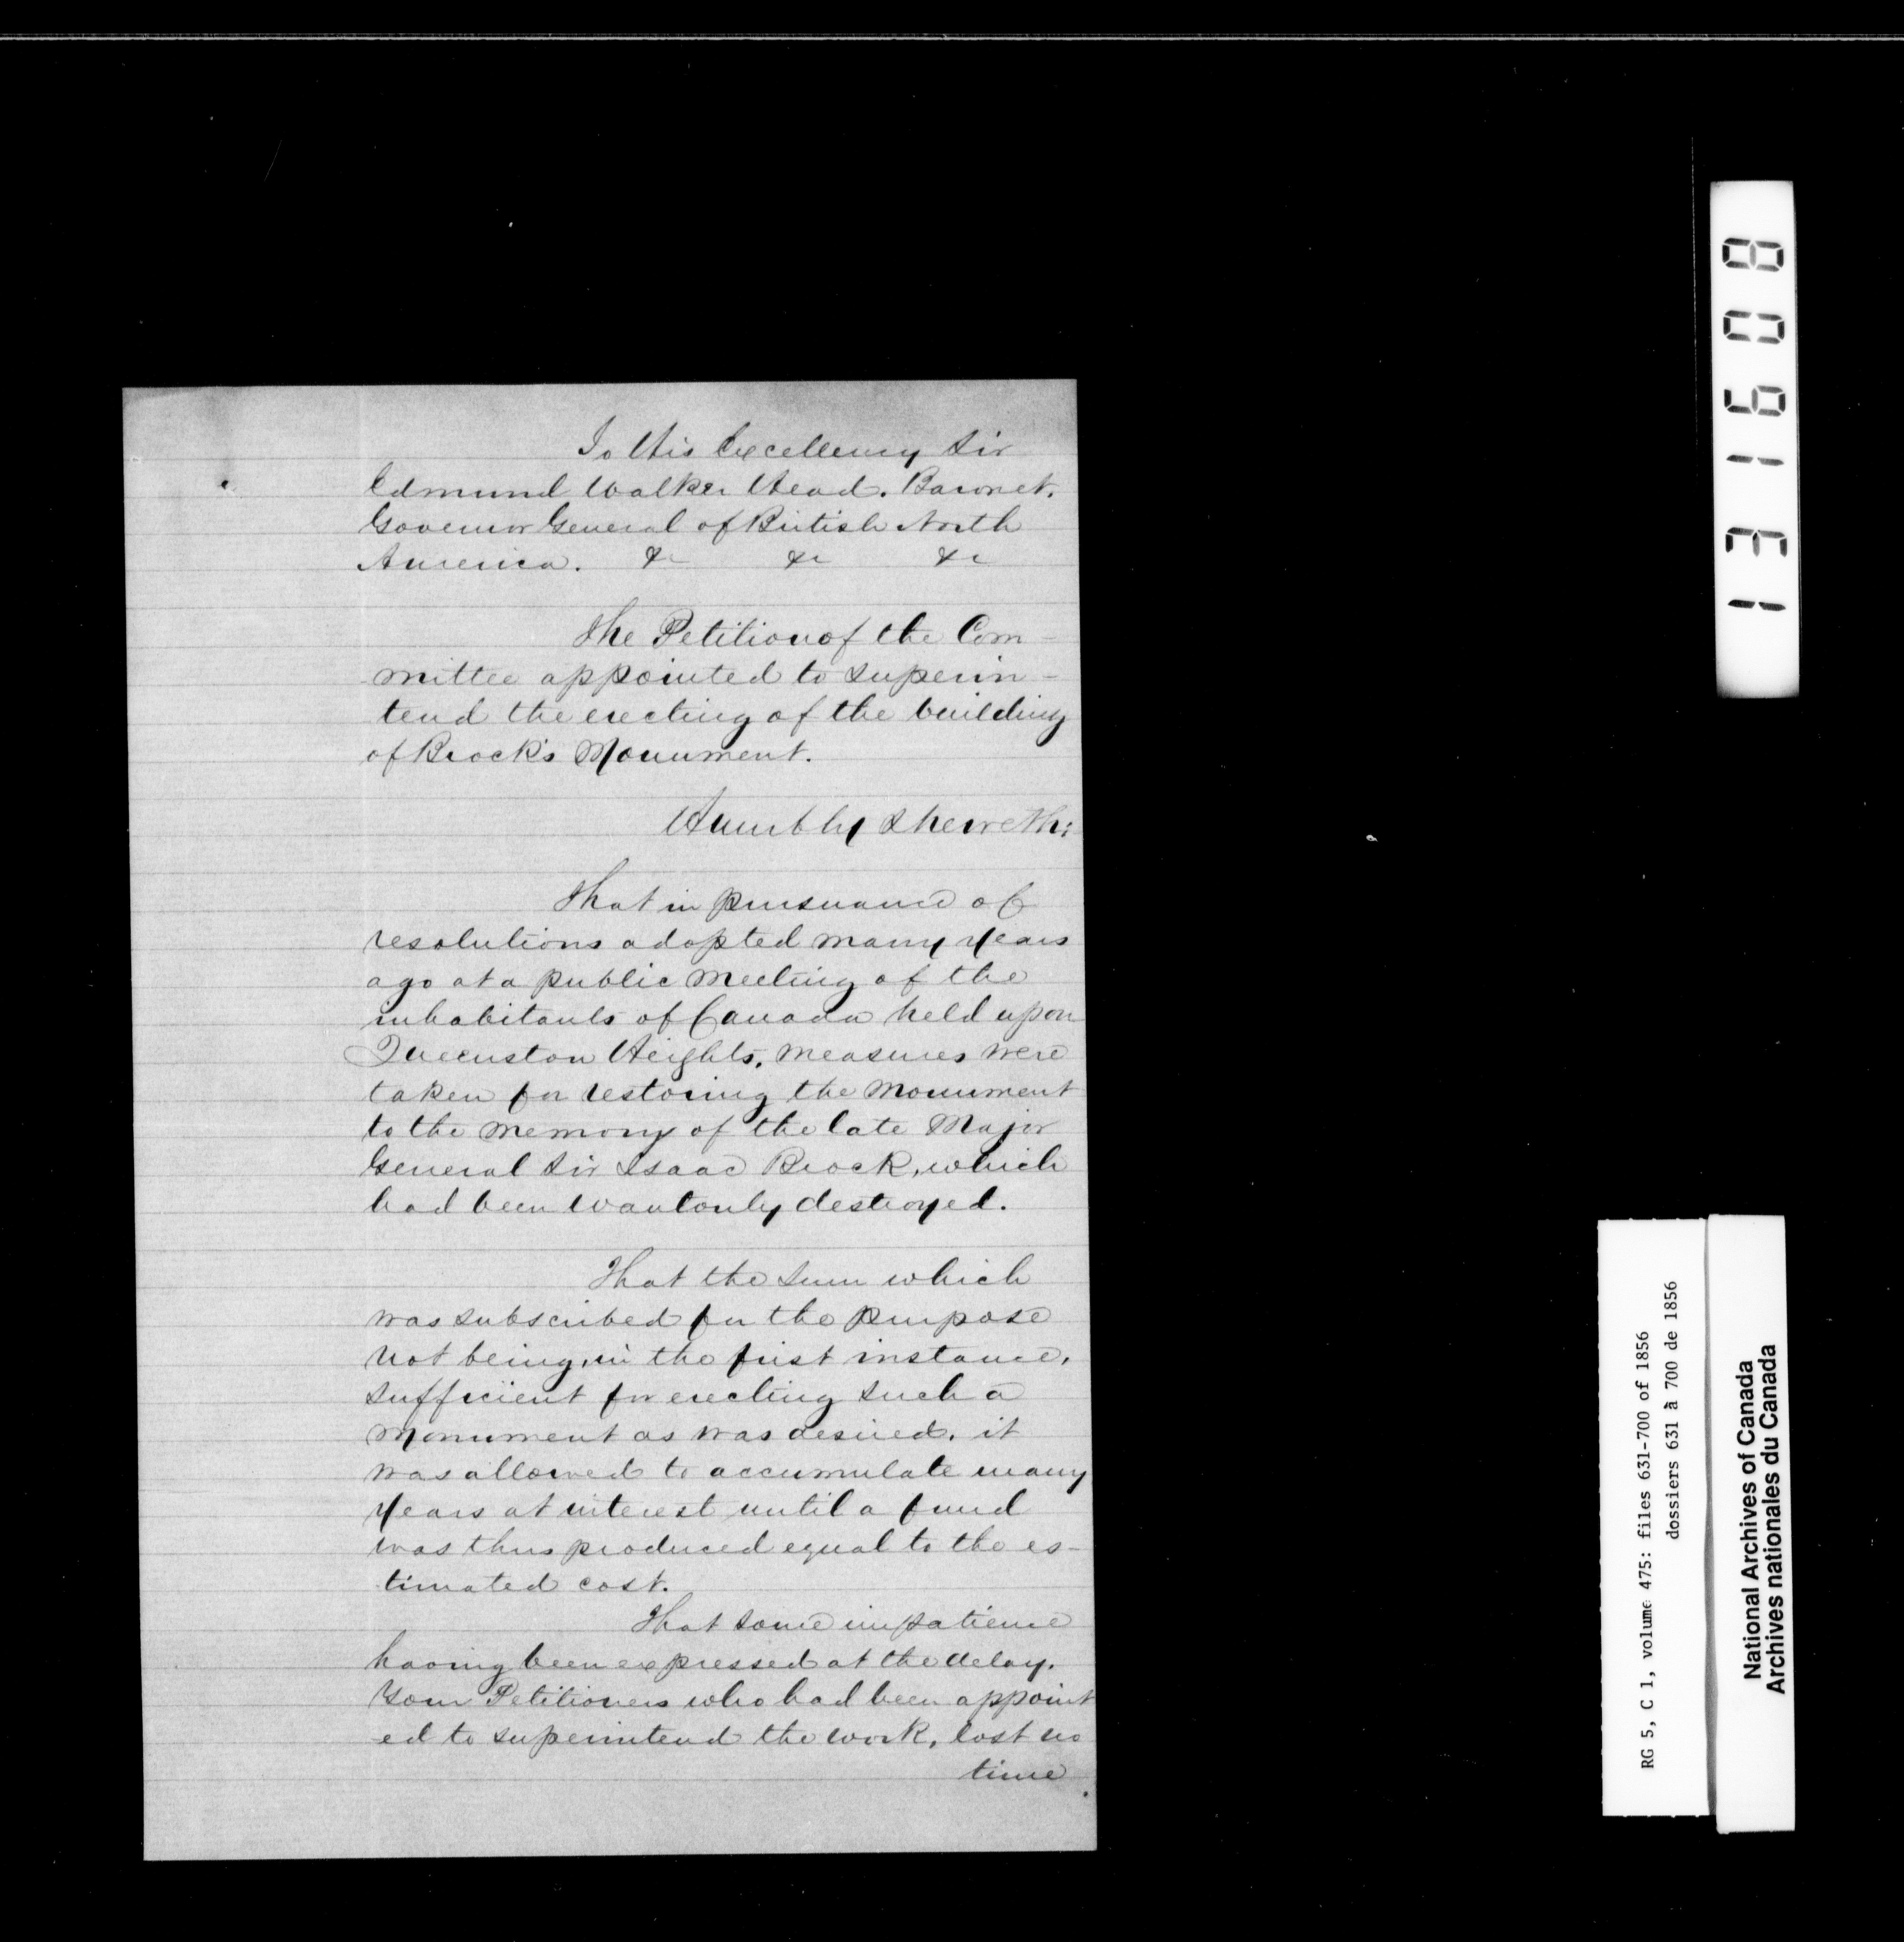 To His Excellency Sir
Edmund Walker Head. Baronet.
Governor General of British North
America. &c &c &c
The Petition of the Com-
mittee appointed to superin-
tend the erecting of the building
of Brock's Monument.
Humbly Sheweth:
That in pursuance of
resolutions adopted many years
ago at a public meeting of the
inhabitants of Canada held upon
Queenston Heights, measures were
taken for restoring the monument
to the memory of the late Major
General Sir Isaac Brock, which
had been wantonly destroyed.
That the sum which
was subscribed for the purpose
not being, in the first instance,
sufficient for erecting such a
monument as was desired, it
was allowed to accumulate many
years at interest until a fund
was thus produced equal to the es-
timated cost.
That some impatience
having been expressed at the delay.
Your Petitioners who had been appoint
ed to superintend the work, lost no
time
131608
RG 5, C 1, volume 475: files 631-700 of 1856
dossiers 631 à 700 de 1856
National Archives of Canada
Archives nationales du Canada